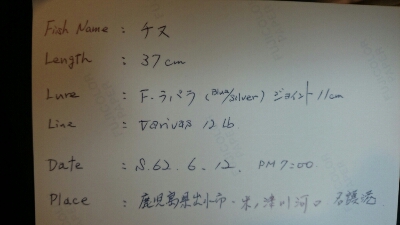 Fish Name : チヌ
Length : 37cm
Lure : F.ラパラ (Blue/Silver) ジョイント 11cm
Line : Varivas 12 lb
Date : S.62. 6. 12. PM 7:00
Place : 鹿児島県出水市・米ノ津川河口 名護港